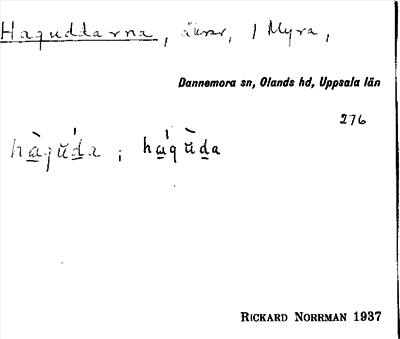 Haguddarna, åkrar, i Myra,
Dannemora sn, Olands hd, Uppsala län
276
hàgŭ́da ; há̱gŭ̀ḏa
RICKARD NORRMAN 1937